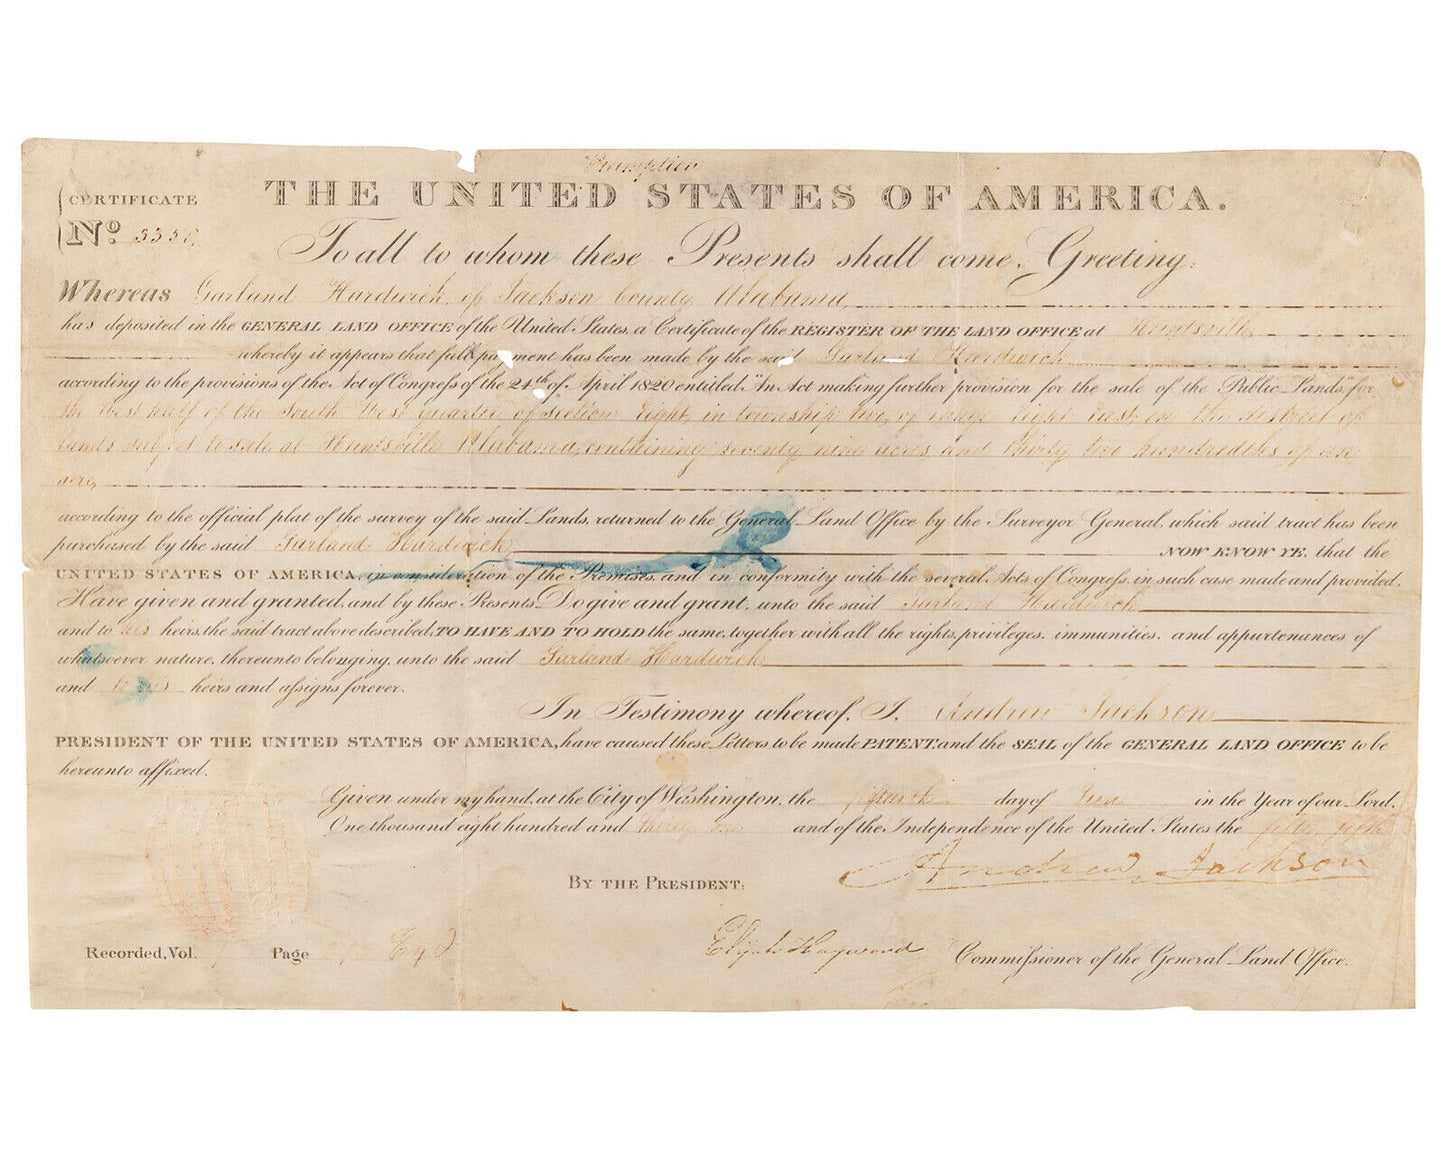 Preemption
THE UNITED STATES OF AMERICA.
CERTIFICATE
No. 3358,
To all to whom these Presents shall come, Greeting:
Whereas Garland Hardwick, of Jackson County Alabama,
has deposited in the GENERAL LAND OFFICE of the United States, a Certificate of the REGISTER OF THE LAND OFFICE at Huntsville
whereby it appears that full payment has been made by the said Garland Hardwick
according to the provisions of the Act of Congress of the 24th of April 1820 entitled "An Act making further provision for the sale of the Public Lands," for
the West half of the South West quarter of section Eight, in township two, of range eight East, in the district of
lands subject to sale at Huntsville Alabama, containing seventy nine acres, and thirty two hundredths of an
acre,
according to the official plat of the survey of the said Lands, returned to the General Land Office by the Surveyor General, which said tract has been
purchased by the said Garland Hardwick, NOW KNOW YE, that the
UNITED STATES OF AMERICA, in consideration of the Premises, and in conformity with the several Acts of Congress, in such case made and provided,
Have given and granted, and by these Presents Do give and grant, unto the said Garland Hardwick
and to his heirs, the said tract above described, TO HAVE AND TO HOLD the same, together with all the rights, privileges, immunities, and appurtenances of
whatsoever nature, thereunto belonging, unto the said Garland Hardwick
and to his heirs and assigns forever.
In Testimony whereof, I, Andrew Jackson
PRESIDENT OF THE UNITED STATES OF AMERICA, have caused these Letters to be made PATENT, and the SEAL of the GENERAL LAND OFFICE to be
hereunto affixed.
Given under my hand, at the City of Washington, the day of June in the Year of our Lord,
One thousand eight hundred and thirty one and of the Independence of the United States the fifty fifth
Andrew Jackson
BY THE PRESIDENT:
Elijah Hayward Commissioner of the General Land Office.
Recorded, Vol. Page